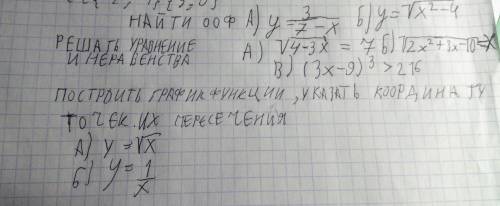 НАЙТИ ООФ А) y = 3/(7-x) Б) y = √x²-4
РЕШАТЬ УРАВНЕНИЕ И НЕРАВЕНСТВА
А) √4-3x = 7 Б) √2x²+3x-10 = x
В) (3x-9)³ > 216
ПОСТРОИТЬ ГРАФИК ФУНКЦИИ, УКАЗАТЬ КООРДИНАТУ
ТОЧЕК ИХ ПЕРЕСЕЧЕНИЯ
А) y = √x
Б) y = 1/x